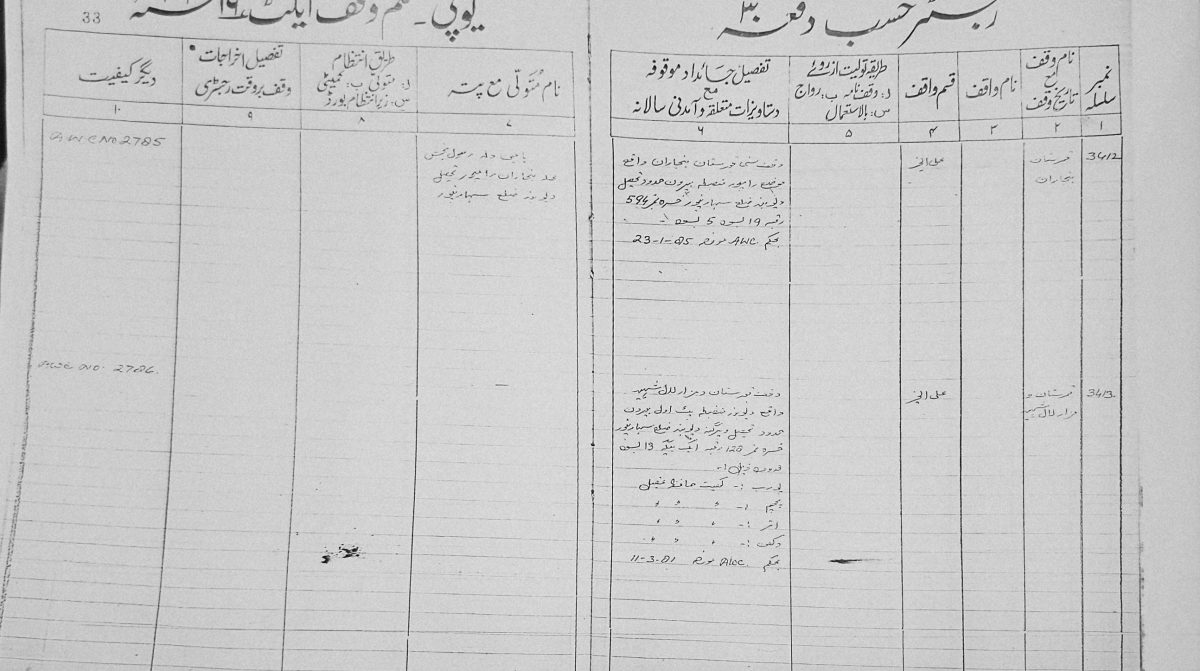 رجسٹر حسب دفعہ ۳۰
یوپی۔ مسلم وقف ایکٹ
33
نمبر سلسلہ
نام وقف
مع
تاریخ وقف
نام واقف
قسم واقف
طریقہ تولیت از روئے
ل: وقف نامہ ب: رواج
س: بالاستعمال
تفصیل جائداد موقوفہ
مع
دستاویزات متعلقہ و آمدنی سالانہ
نام متولی مع پتہ
طریق انتظام
ل: متولی ب: کمیٹی
س: زیر انتظام بورڈ
تفصیل اخراجات
وقف بروقت رجسٹری
دیگر کیفیت
۱
۲
۳
۴
۵
۶
۷
۸
۹
۱۰
3412
قبرستان
بنجاران
علی الخیر
وقف سنی قبرستان بنجاران واقع
موضع رامپور متصلہ بیرون حدود تحصیل
دیوبند ضلع سہارنپور خسرہ نمبر 594
رقبہ 19 بسوہ 5
بحکم AWC مورخہ 23-1-85
ولد رسول بخش
محلہ بنجاران رامپور تحصیل
دیوبند ضلع سہارنپور
AWC No 2785
3413
قبرستان و
مزار لال شہید
علی الخیر
وقف قبرستان و مزار لال شہید
واقع دیوبند متصلہ اول بیرون
حدود تحصیل و پرگنہ دیوبند ضلع سہارنپور
خسرہ نمبر 128 رقبہ ایک بیگھہ 13 بسوہ
حدود ذیل :-
پورب :- کھیت حافظ
پچھم :- " " "
اتر :- " " "
دکھن :- " " "
بحکم AWC مورخہ 11-3-81
AWC No. 2786.